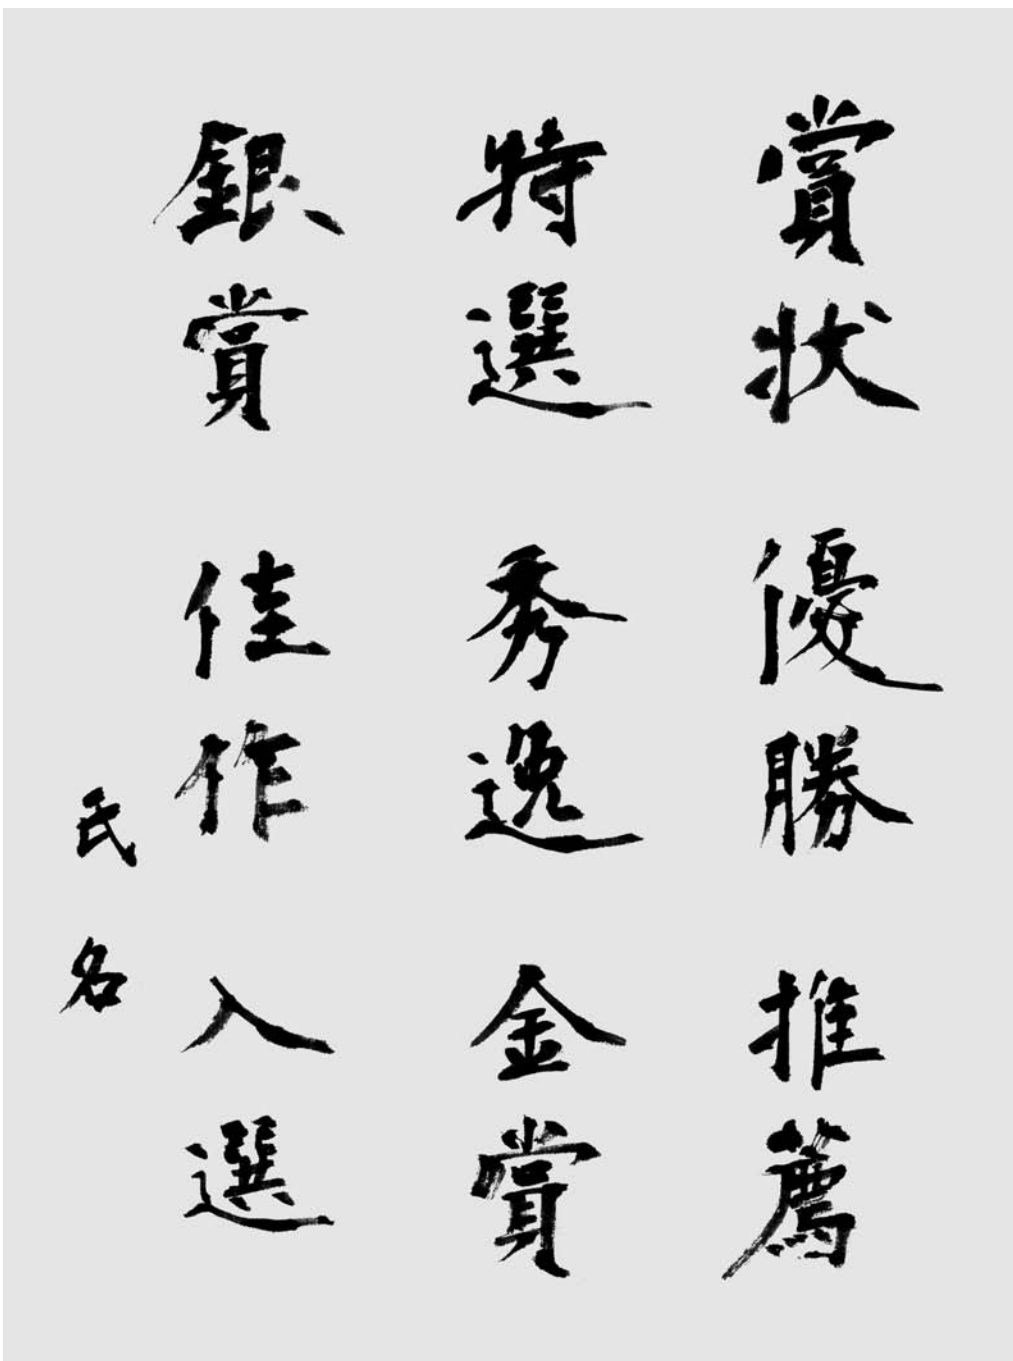 賞状 優勝 推薦
特選 秀逸 金賞
銀賞 佳作 入選
氏名